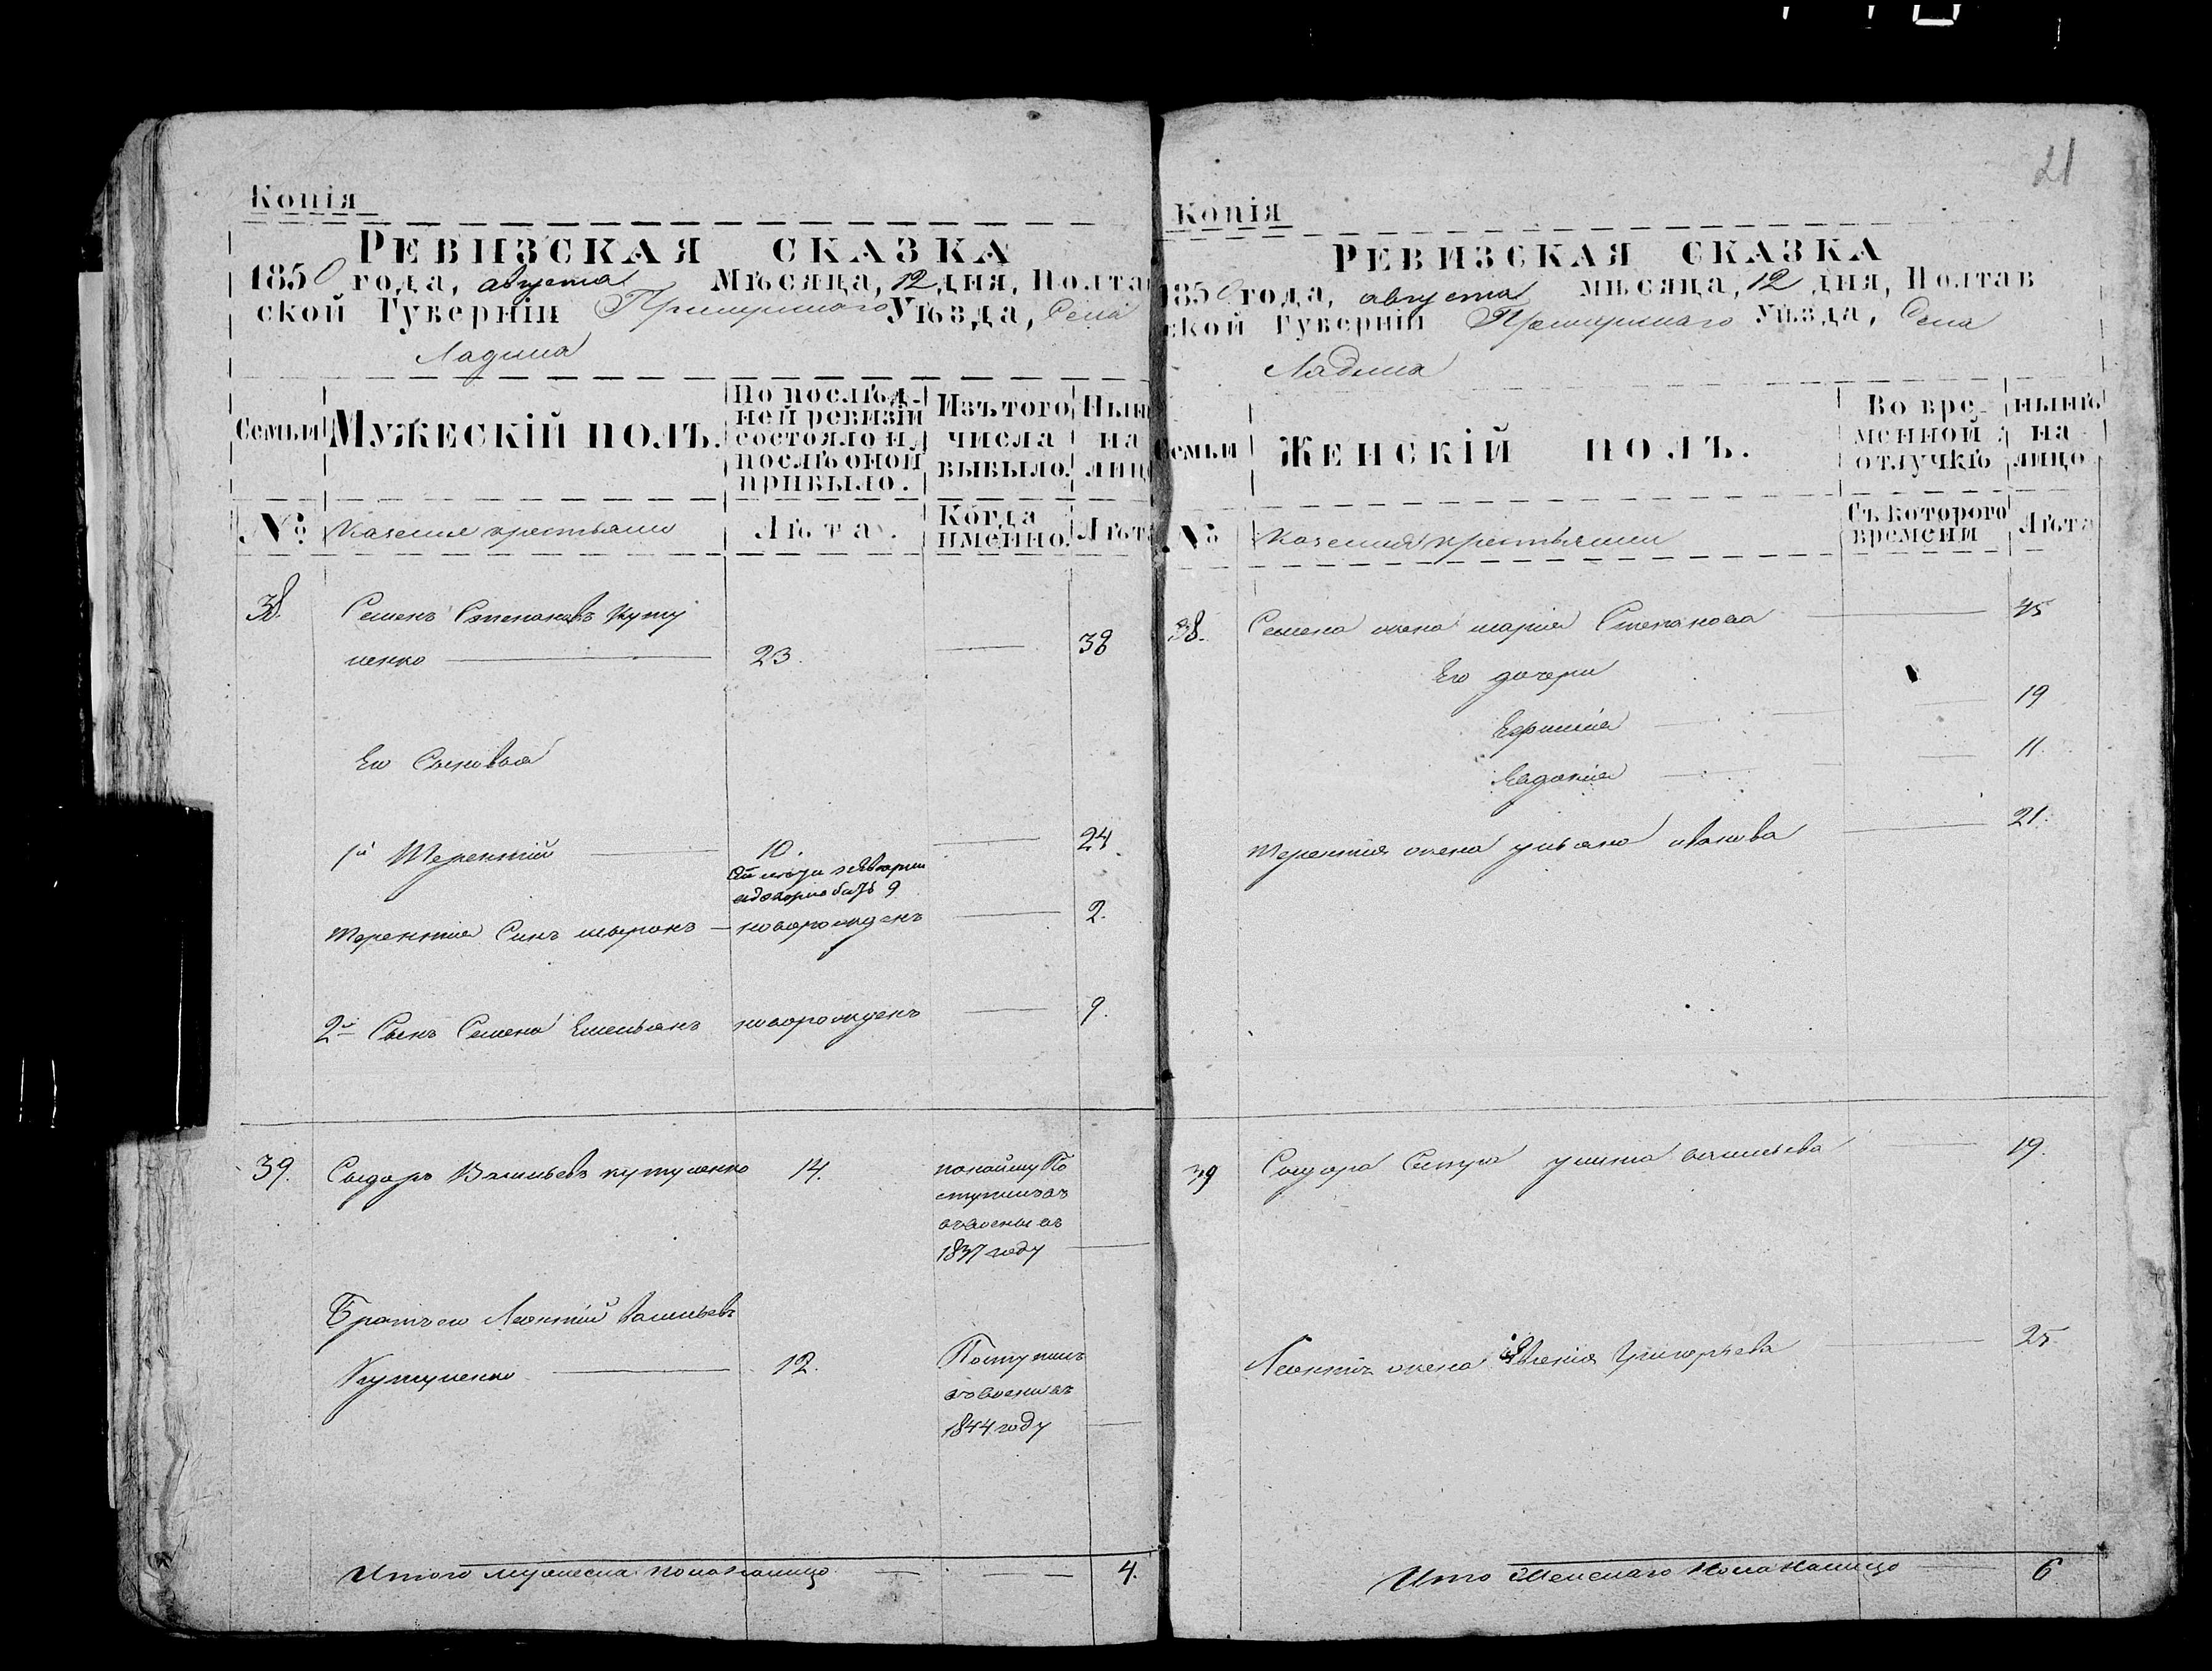 21
Копія
РЕВИЗСКАЯ СКАЗКА
1850 года, августа Мѣсяца, 12 дня, Полтав
ской Губерніи Прилуцкаго Уѣзда, Села
Ладина
Семьи
МУЖЕСКІЙ ПОЛЪ.
По послѣд-
ней ревизіи
состояло и
послѣ оной
прибыло.
Изъ того
числа
выбыло.
Нынѣ
на
лицо
№
Казенные крестьяне
Лѣта.
Когда
именно.
Лѣта
38. Семенъ Степановъ Куту
ценко 23. 38
Его Сыновья
1й Терентій 10. 24
Терентія Синъ миронъ новорожденъ 2.
2й Сынъ Семена Емельянъ новорожденъ 9.
39. Сыдоръ Васильевъ кутуценко 14.
по найму По
ступилъ въ
1837 году
Братъ его Леонтій васильевъ
Кутуценко 12.
Поступилъ
1844 году
Итого мужеска пола налицо 4.
Копія
РЕВИЗСКАЯ СКАЗКА
1850 года, августа мѣсяца, 12 дня, Полтав
ской Губерніи Прилуцкаго Уѣзда, Села
Ладина
Семьи
ЖЕНСКІЙ ПОЛЪ.
Во вре-
менной
отлучкѣ
нынѣ
на
лицо
№
Казенныя крестьянки
Съ котораго
времени
Лѣта
38. Семена жена марія Степанова 45
Его дочери
19
Евдокія 11
Терентія жена уляна иванова 21.
39 Сыдора Сестра улита васильева 19.
Леонтія жена Григорьева 25.
Итого Женскаго Пола Налицо 6